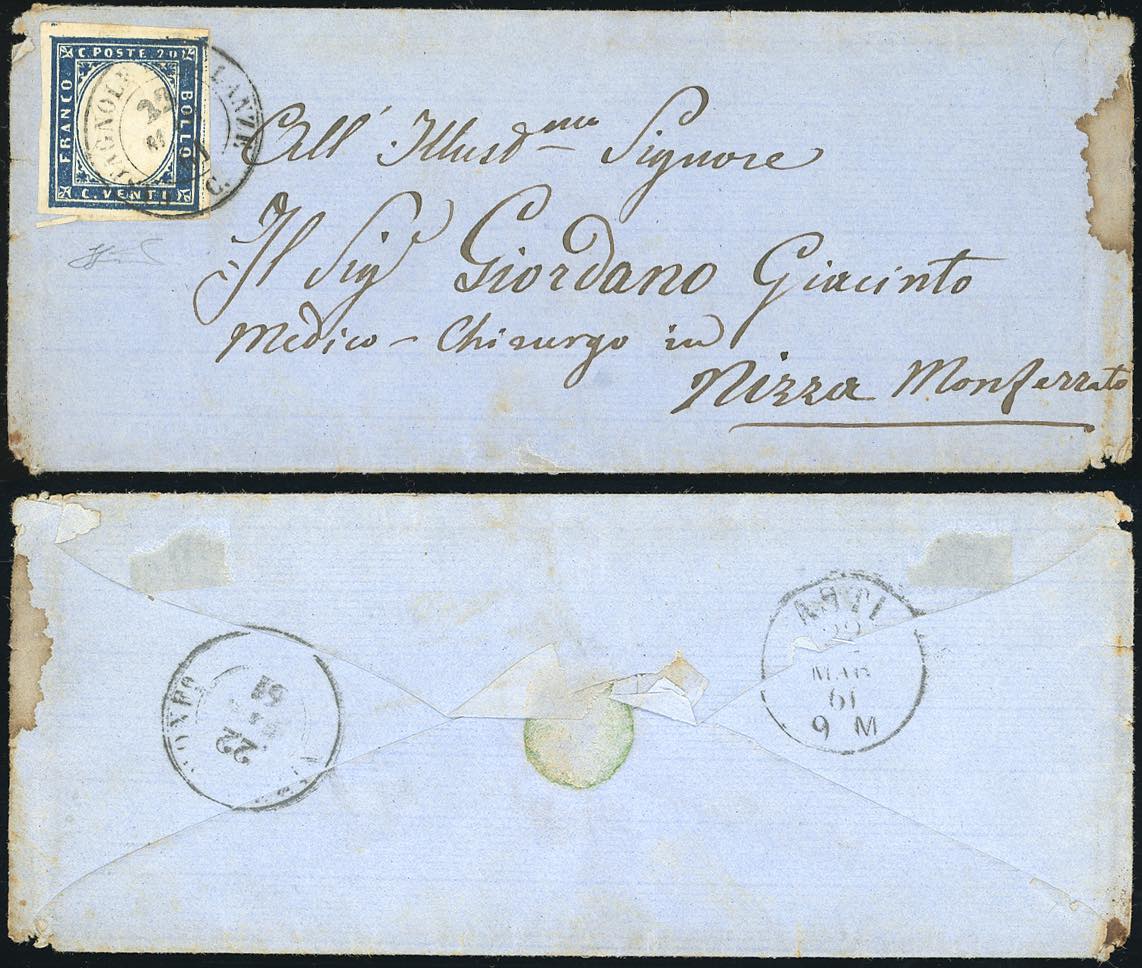 C. POSTE 20
FRANCO
BOLLO
C. VENTI
LANZE
22
C.
All' Illust.mo Signore
Il Sig. Giordano Giacinto
Medico - Chirurgo in
Nizza Monferrato
ASTI
22
MAR
61
9 M
61
22